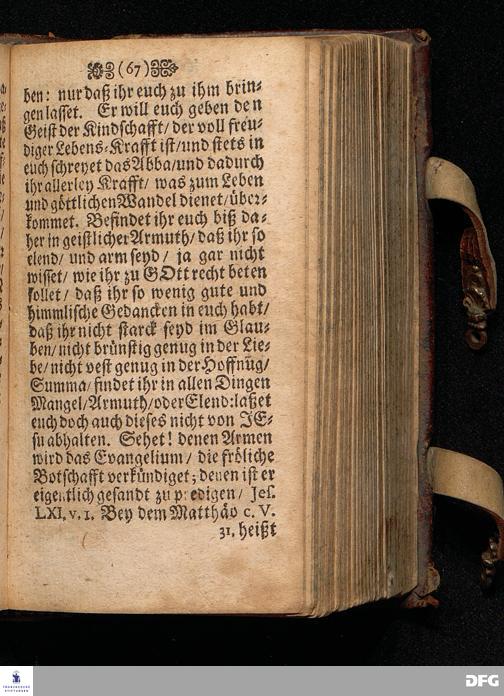 (67)
ben: nur daß ihr euch zu ihm brin-
gen lasset. Er will euch geben den
Geist der Kindschafft/ der voll freu-
diger Lebens-Krafft ist/ und stets in
euch schreyet das Abba/ und dadurch
ihr allerley Krafft/ was zum Leben
und göttlichen Wandel dienet/ über-
kommet. Befindet ihr euch biß da-
her in geistlicher Armuth/ daß ihr so
elend/ und arm seyd/ ja gar nicht
wisset/ wie ihr zu GOtt recht beten
sollet/ daß ihr so wenig gute und
himmlische Gedancken in euch habt/
daß ihr nicht starck seyd im Glau-
ben/ nicht brünstig genug in der Lie-
be/ nicht vest genug in der Hoffnūg/
Summa/ findet ihr in allen Dingen
Mangel/ Armuth/ oder Elend: laßet
euch doch auch dieses nicht von JE-
su abhalten. Sehet! denen Armen
wird das Evangelium/ die fröliche
Botschafft verkündiget; denen ist er
eigentlich gesandt zu predigen/ Jes.
LXI, v. 1. Bey dem Matthäo c. V.
31. heißt
FRANCKESCHE
STIFTUNGEN
DFG